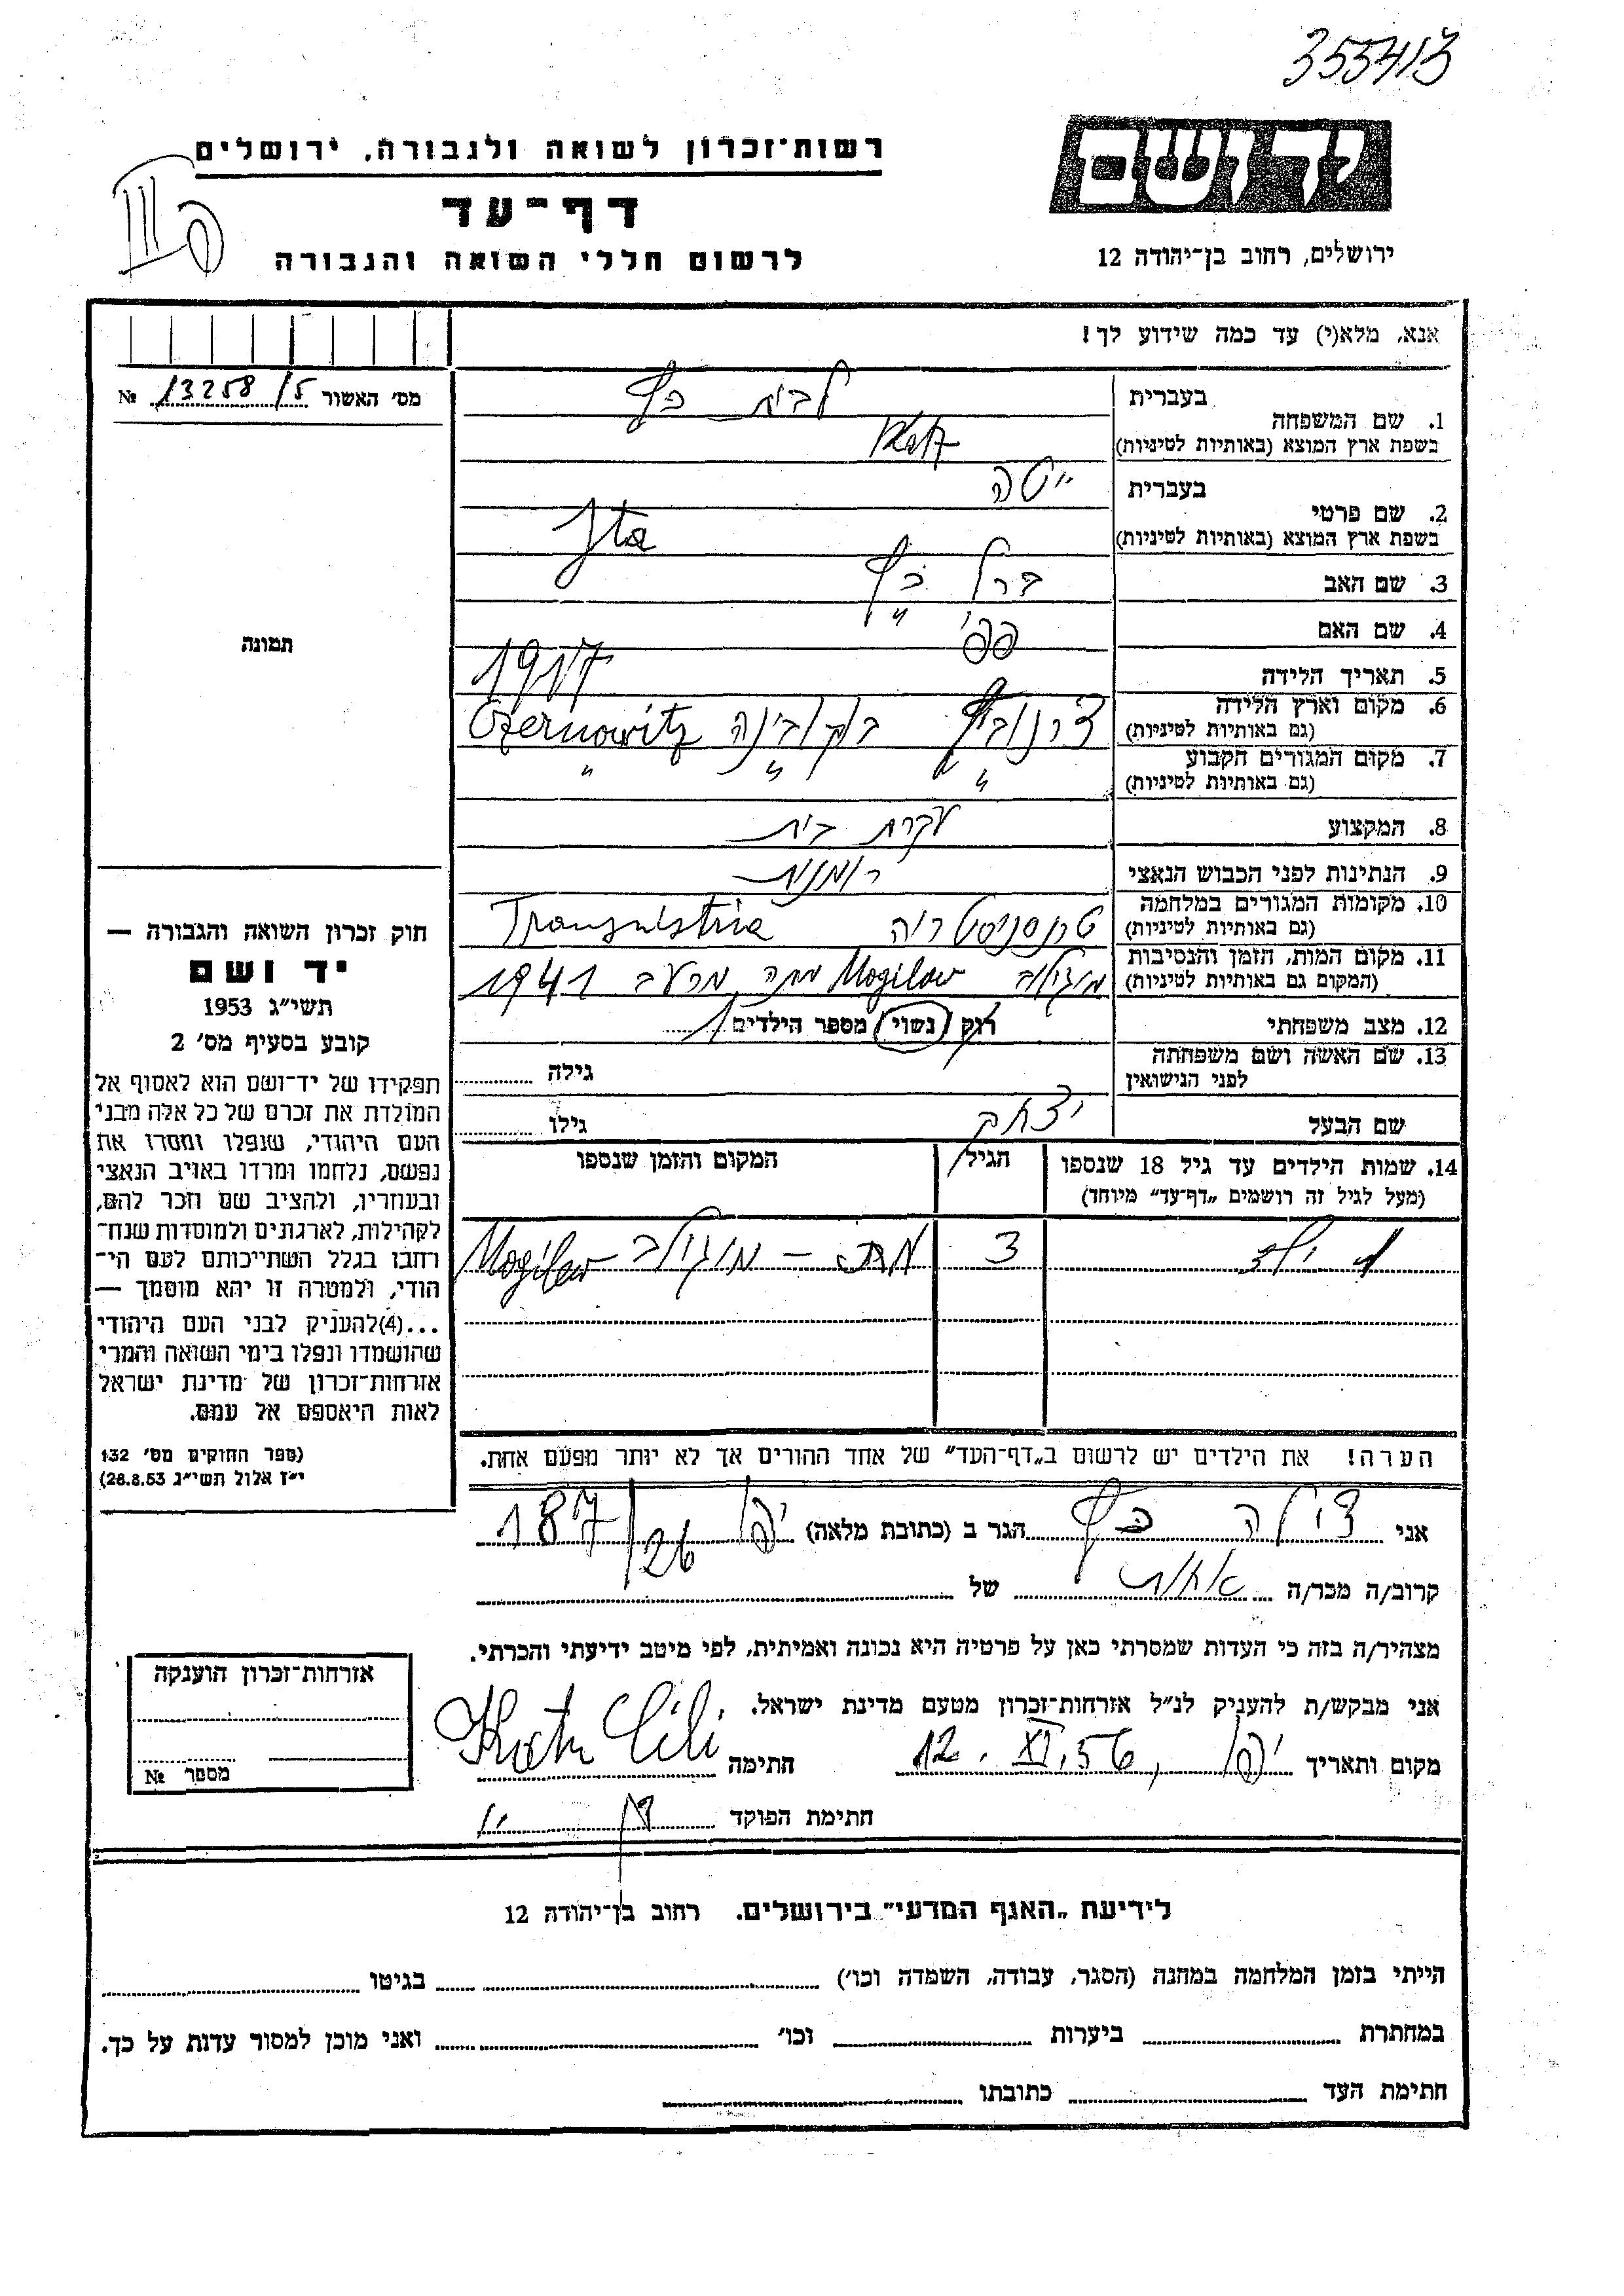 353413
רשות־זכרון לשואה ולגבורה, ירושלים
יד ושם
דף־עד
לרשום חללי השואה והגבורה
ירושלים, רחוב בן־יהודה 12
אנא, מלא(י) עד כמה שידוע לך!
מס׳ האשור № 13258/5
1. שם המשפחה
בעברית לבית כץ
בשפת ארץ המוצא (באותיות לטיניות) Katz
2. שם פרטי
בעברית ייטה
בשפת ארץ המוצא (באותיות לטיניות) Jta
3. שם האב ברל כץ
4. שם האם פפי "
תמונה
5. תאריך הלידה 1917
6. מקום וארץ הלידה
(גם באותיות לטיניות) צרנוביץ בוקובינה Czernowitz
7. מקום המגורים הקבוע
(גם באותיות לטיניות) " " "
8. המקצוע עקרת בית
9. הנתינות לפני הכבוש הנאצי רומנית
10. מקומות המגורים במלחמה
(גם באותיות לטיניות) טרנסניסטריה Transnistria
11. מקום המות, הזמן והנסיבות
(המקום גם באותיות לטיניות) מוגילוב Mogilow מתה מרעב 1941
12. מצב משפחתי רוק / נשוי / מספר הילדים 1
13. שם האשה ושם משפחתה
לפני הנישואין גילה
שם הבעל יצחק גילו
14. שמות הילדים עד גיל 18 שנספו הגיל המקום והזמן שנספו
(מעל לגיל זה רושמים „דף־עד” מיוחד)
1 ילד 3 מת – מוגילוב Mogilow
הערה! את הילדים יש לרשום ב„דף־העד” של אחד ההורים אך לא יותר מפעם אחת.
חוק זכרון השואה והגבורה —
יד ושם
תשי״ג 1953
קובע בסעיף מס׳ 2
תפקידו של יד־ושם הוא לאסוף אל
המולדת את זכרם של כל אלה מבני
העם היהודי, שנפלו ומסרו את
נפשם, נלחמו ומרדו באויב הנאצי
ובעוזריו, ולהציב שם וזכר להם,
לקהילות, לארגונים ולמוסדות שנח־
רבו בגלל השתייכותם לעם הי־
הודי, ולמטרה זו יהא מוסמך —
...(4)להעניק לבני העם היהודי
שהושמדו ונפלו בימי השואה והמרי
אזרחות־זכרון של מדינת ישראל
לאות היאספם אל עמם.
(ספר החוקים מס׳ 132
י״ז אלול תשי״ג 28.8.53)
אני צילה כץ הגר ב (כתובת מלאה) יפו 187/26
קרוב/ה מכר/ה אחות של
מצהיר/ה בזה כי העדות שמסרתי כאן על פרטיה היא נכונה ואמיתית, לפי מיטב ידיעתי והכרתי.
אני מבקש/ת להעניק לנ״ל אזרחות־זכרון מטעם מדינת ישראל.
מקום ותאריך יפו, 12.XI.56 חתימה Katz Cili
חתימת הפוקד
אזרחות־זכרון הוענקה
מספר №
לידיעת „האגף המדעי” בירושלים. רחוב בן־יהודה 12
הייתי בזמן המלחמה במחנה (הסגר, עבודה, השמדה וכו׳) בגיטו
במחתרת ביערות וכו׳ ואני מוכן למסור עדות על כך.
חתימת העד כתובתו